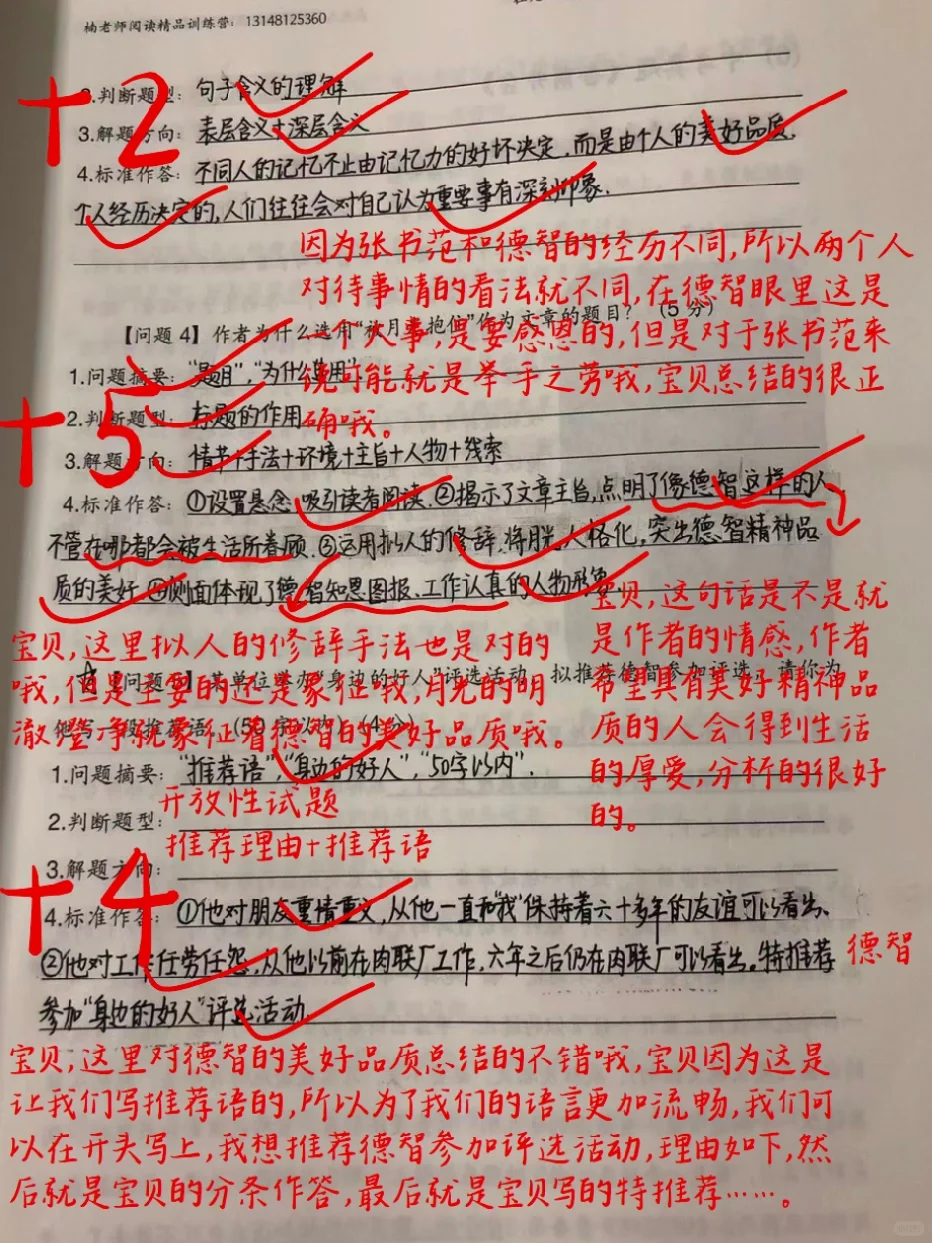 柚老师阅读精品训练营：13148125360
+2
2.判断题型：句子含义的理解
3.解题方向：表层含义+深层含义
4.标准作答：不同人的记忆不止由记忆力的好坏决定，而是由个人的美好品质，
个人经历决定的，人们往往会对自己认为重要事有深刻印象．
因为张书范和德智的经历不同，所以两个人
对待事情的看法就不同，在德智眼里这是
一个大事，是要感恩的，但是对于张书范来
说可能就是举手之劳哦，宝贝总结的很正
确哦。
【问题 4】作者为什么选用“秋月 抱住”作为文章的题目？（5 分）
+5
1.问题摘要：“题目”，“为什么选用”
2.判断题型：标题的作用
3.解题方向：情节+手法+环境+主旨+人物+线索
4.标准作答：①设置悬念，吸引读者阅读．②揭示了文章主旨，点明了像德智这样的人
不管在哪都会被生活所眷顾．③运用拟人的修辞，将月人格化，突出德智精神品
质的美好．④侧面体现了德智知恩图报、工作认真的人物形象
宝贝，这里拟人的修辞手法也是对的
哦，但是主要的还是象征哦，月光的明
澈澄净就象征着德智的美好品质哦。
宝贝，这句话是不是就
是作者的情感，作者
希望具有美好精神品
质的人会得到生活
的厚爱，分析的很好
的。
【问题 】某单位举办“身边的好人”评选活动，拟推荐德智参加评选，请你为
他写一段推荐语。（50 字以内）（4 分）
1.问题摘要：“推荐语”，“身边的好人”，“50字以内”．
2.判断题型：开放性试题
3.解题方向：推荐理由+推荐语
+4
4.标准作答：①他对朋友重情重义，从他一直和“我”保持着六十多年的友谊可以看出、
②他对工作任劳任怨，从他以前在肉联厂工作，六年之后仍在肉联厂可以看出。特推荐 德智
参加“身边的好人”评选活动．
宝贝，这里对德智的美好品质总结的不错哦，宝贝因为这是
让我们写推荐语的，所以为了我们的语言更加流畅，我们可
以在开头写上，我想推荐德智参加评选活动，理由如下，然
后就是宝贝的分条作答，最后就是宝贝写的特推荐……。